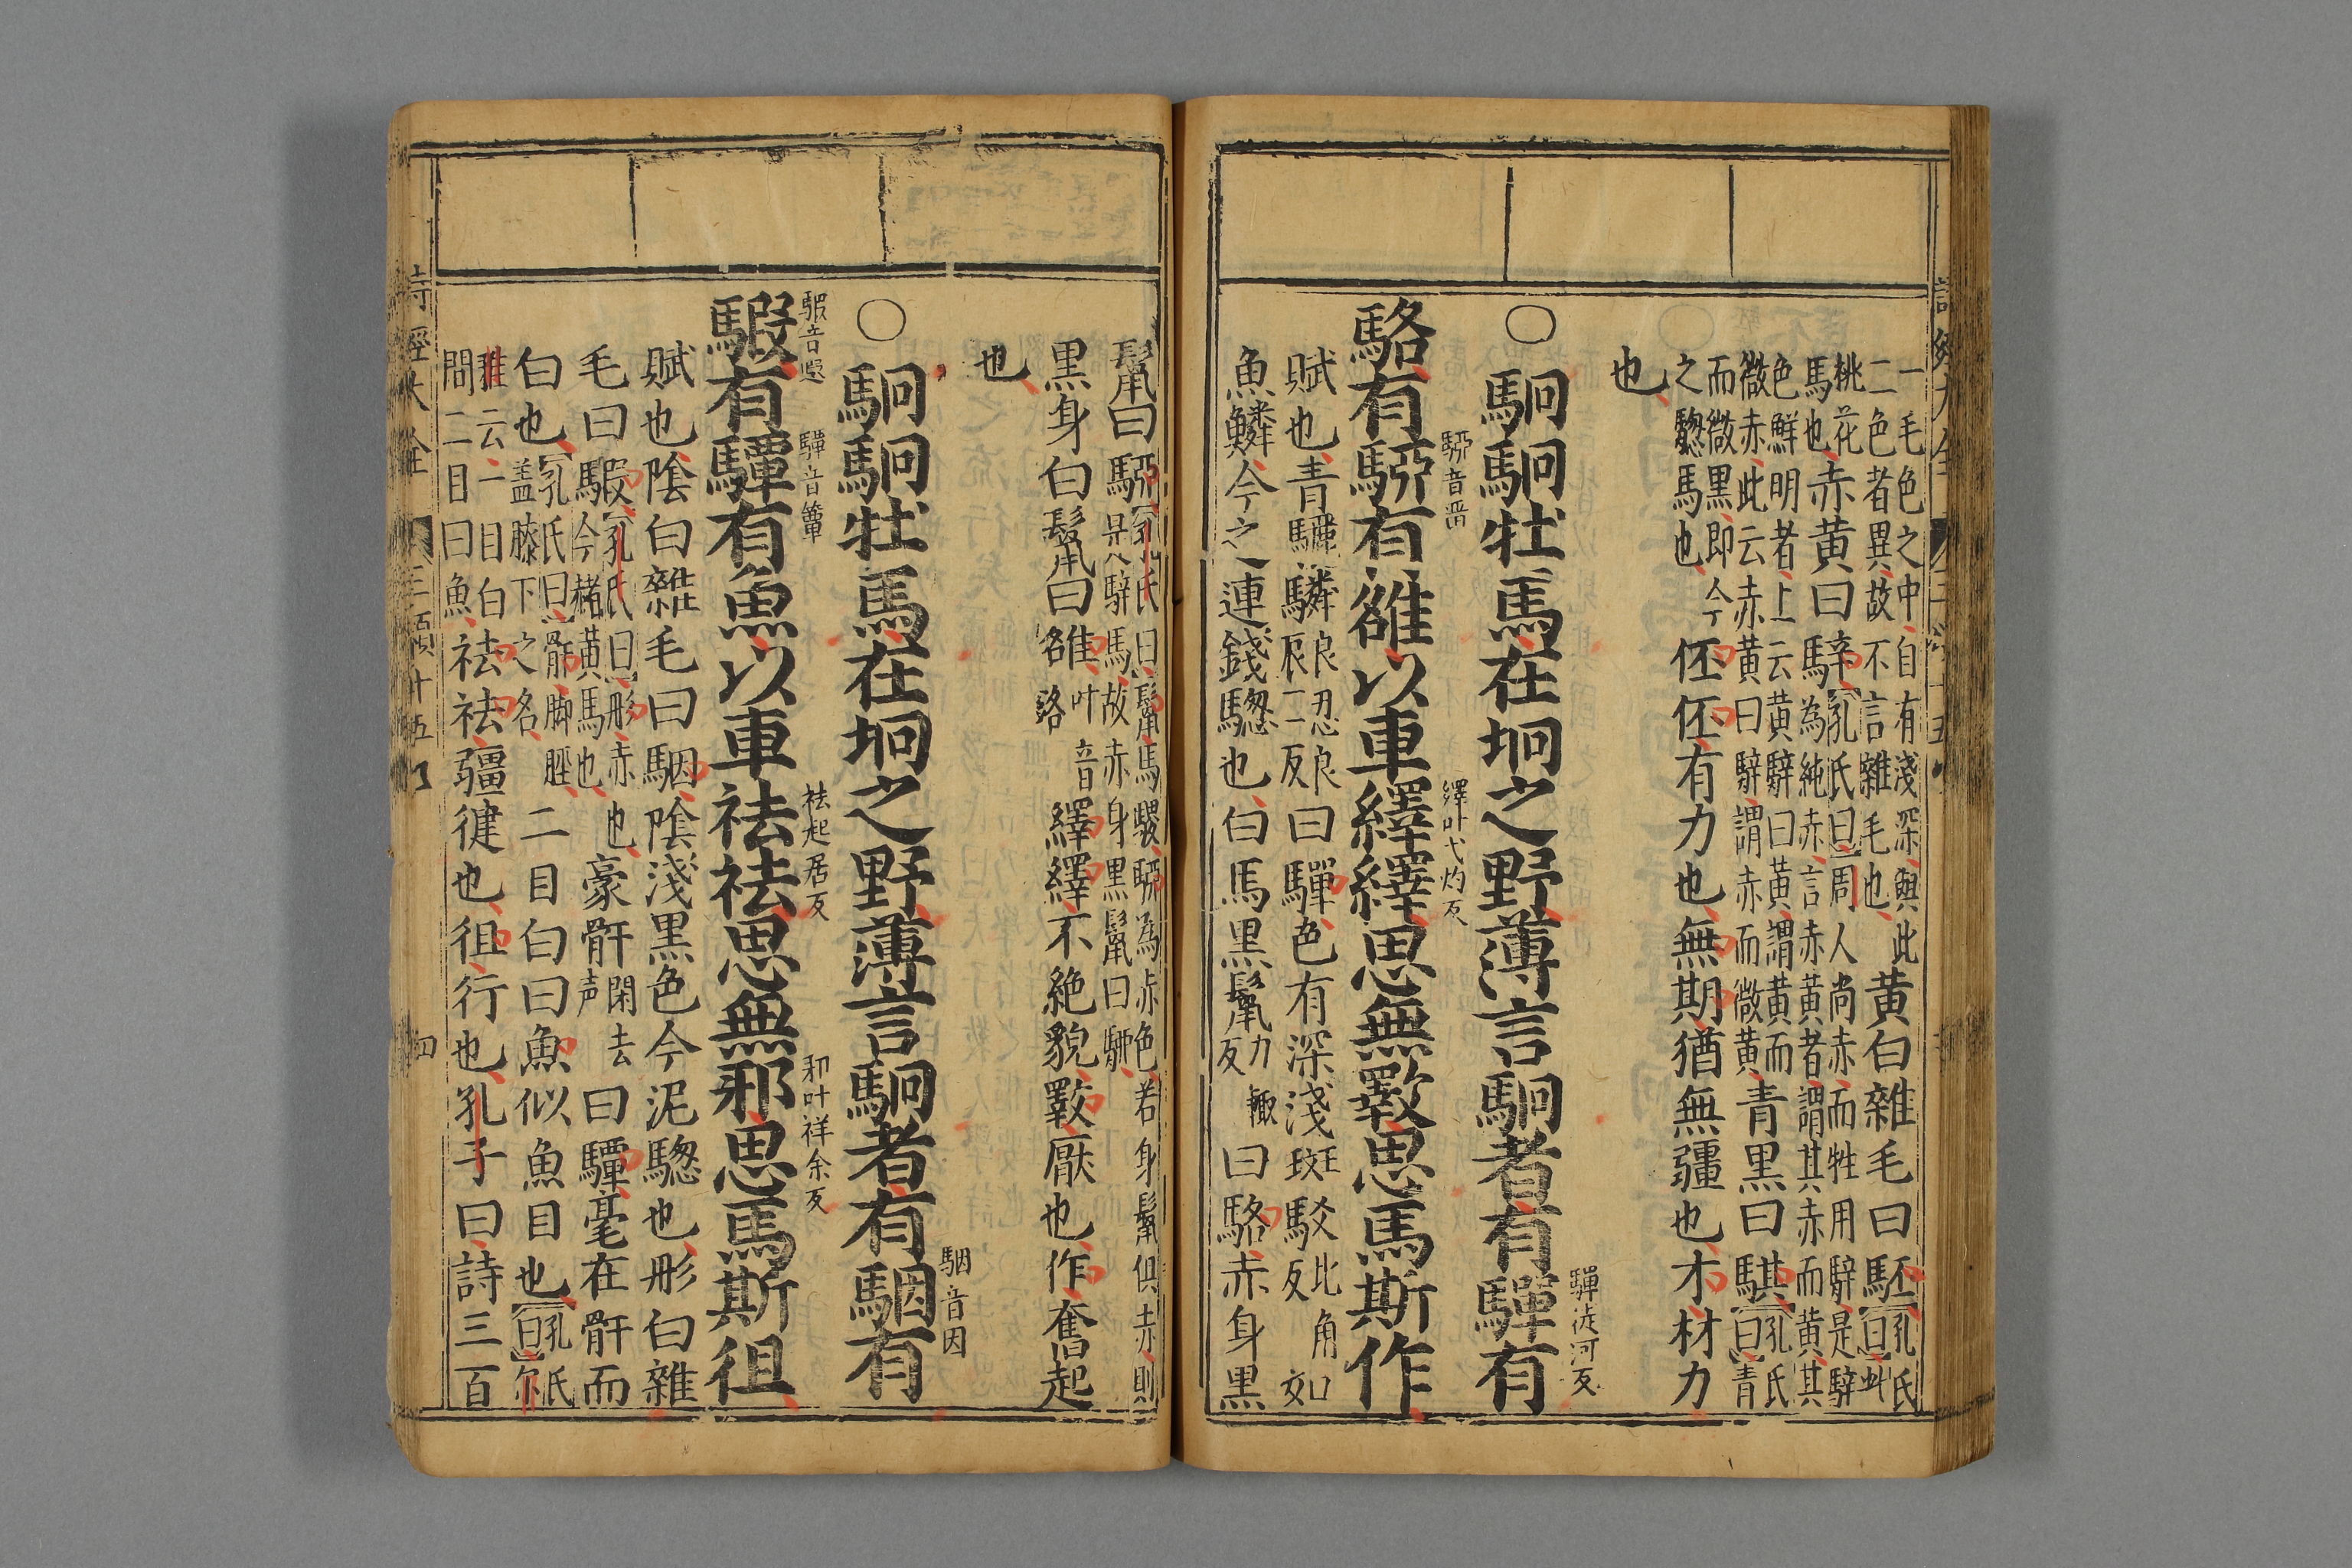 一毛色之中自有淺深與此
二色者異故不言雜毛也
黃白雜毛曰駓
孔氏曰此
桃花馬也
赤黃曰騂
孔氏曰周人尚赤而牲用騂是騂
為純赤言赤黃者謂其赤而黃其
色鮮明者上云黃騂曰黃謂黃而
微赤此云赤黃曰騂謂赤而微黃
青黑曰騏
孔氏曰青
而微黑即今
之驄馬也
伾伾有力也無期猶無疆也才材力
也
○駉駉牡馬在坰之野薄言駉者有驒有
驒徒河反
駱有駵有雒以車繹繹思無斁思馬斯作
駵音畱
繹叶弋灼反
賦也青驪驎
良忍良
辰二反
曰驒色有深淺斑駁
比角
反
如
魚鱗今之連錢驄也白馬黑鬛
力
輒
反
曰駱赤身黑
鬛曰駵
孔氏曰鬛馬騣駵為赤色若身鬛俱赤則
是騂馬故赤身黑鬛曰駵
黑身白鬛曰雒
叶音
洛
繹繹不絕貌斁厭也作奮起
也
○駉駉牡馬在坰之野薄言駉者有駰有
駰音因
騢有驔有魚以車祛祛思無邪思馬斯徂
騢音遐
驔音簟
祛起居反
邪叶祥余反
賦也陰白雜毛曰駰陰淺黑色今泥驄也彤白雜
毛曰騢
孔氏曰彤赤也
今赭黃馬也
豪骭
閑去
声
曰驔毫在骭而
白也
孔氏曰骭脚脛
蓋膝下之名
二目白曰魚似魚目也
孔氏
曰尔
雅云一目白
瞷二目曰魚
祛祛彊健也徂行也孔子曰詩三百
詩經大全
四